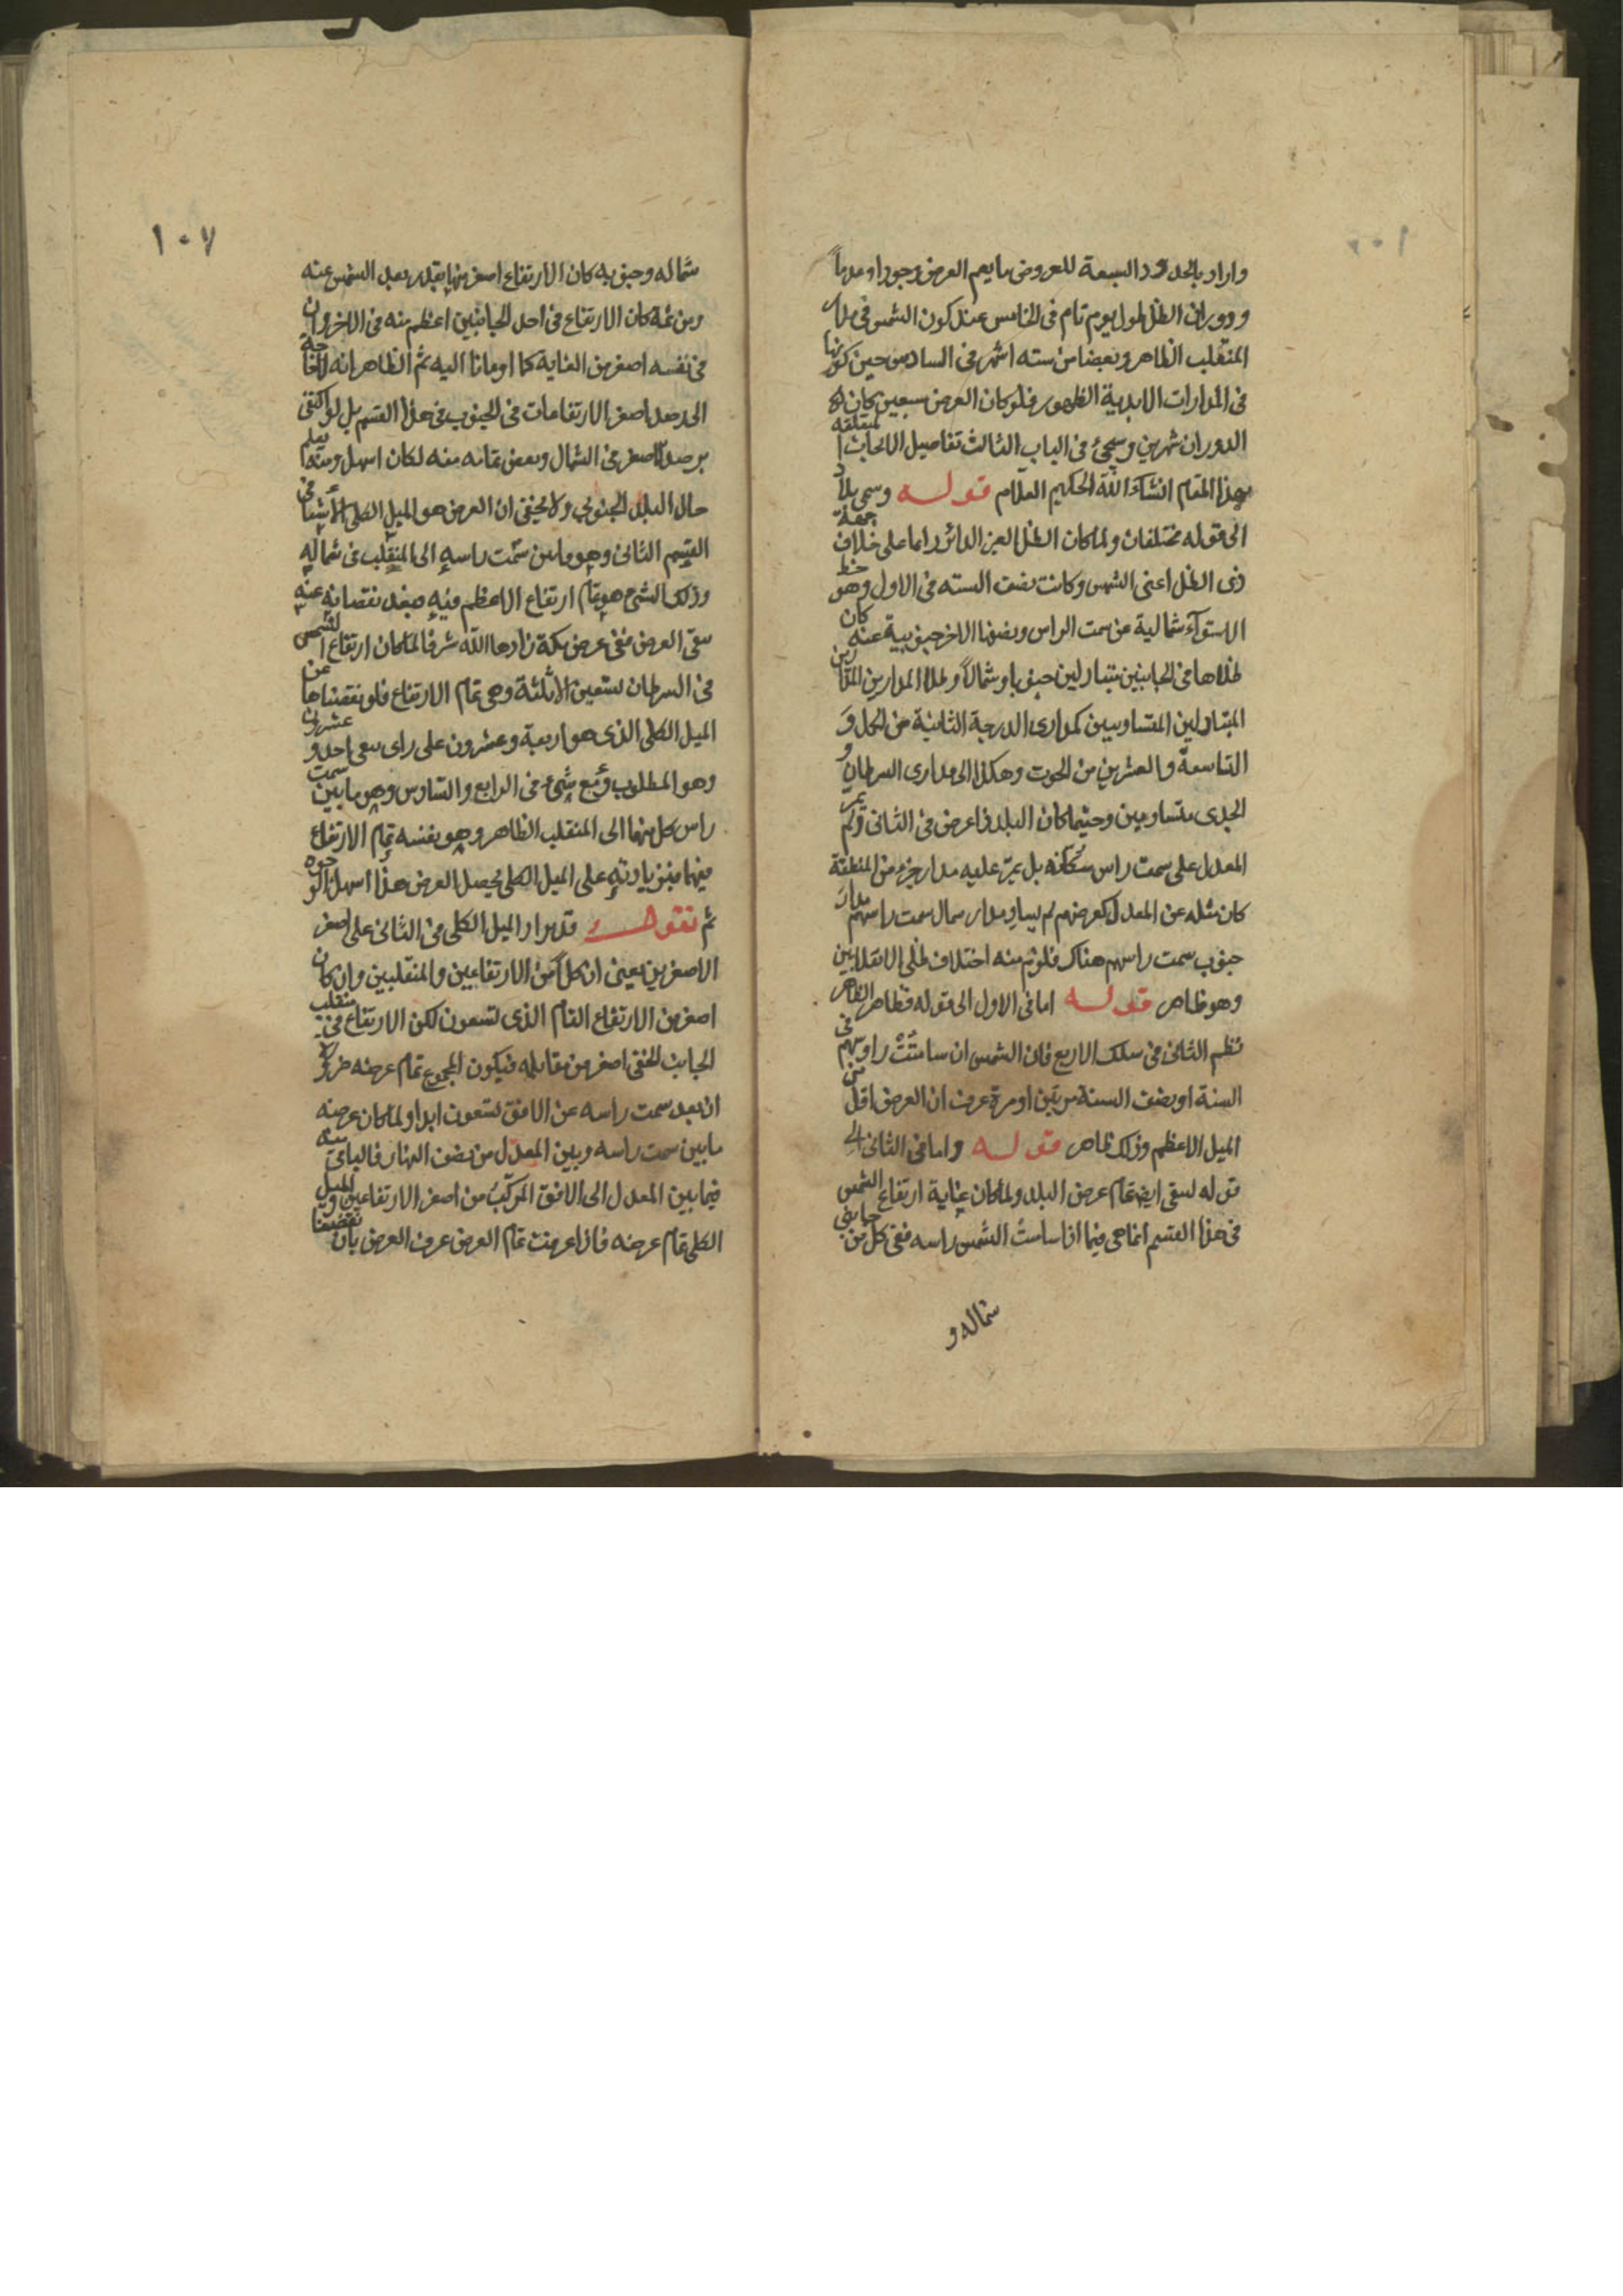 واراد بالحدود السبعة للعروض ما يعم العرض وجودا وعدما
ودوران الظل طول يوم تام فى الخامس عند كون الشمس فى مدار
المنقلب الظاهر وبعضا من سته اشهر فى السادس حين كونها
فى المدارات الابدية الظهور فلو كان العرض سبعين كان
الدوران شهرين وسيجئ فى الباب الثالث تفاصيل الابحاث المتعلقة
بهذا المقام انشاء الله الحكيم العلام قوله وسمى بلاد
الى قوله مختلفان ولما كان الظل لعين الدائر دائما على خلاف جهة
ذى الظل اعنى الشمس وكانت نصف السنه فى الاول وهو خط
الاستوآء شمالية عن سمت الراس ونصفها الاخر جنوبية عنه كان
ظلاها فى الجانبين متبادلين جنوبا وشمالا وظلا المدارين المتقاربين
المتبادلين المتساويين كمدارى الدرجة الثانية من الحمل و
التاسعة والعشرين من الحوت وهكذا الى مدارى السرطان و
الجدى متساويين وحيثما كان البلد ذا عرض فى الثانى ولم يمر
المعدل على سمت راس سكانه بل يمر عليه مدار جزء من المنطقة
كان مثله عن المعدل كعرضهم لم يساو مدار شمال سمت راسهم مدار
جنوب سمت راسهم هناك فلزم منه اختلاف ظلى الانقلابين
وهو ظاهر قوله اما فى الاول الى قوله فظاهر الظاهر
نظم الثانى فى سلك الاربع فان الشمس ان سامتت راوسهم فى
السنة او نصف السنة مرتين او مرة عرف ان العرض اقل من
الميل الاعظم وذلك ظاهر قوله واما فى الثانى الى
قوله ليبقى ايضا تمام عرض البلد ولما كان غاية ارتفاع الشمس
فى هذا القسم انما هى فيما اذا سامت الشمس راسه ففى كل من جانبى
شماله و
١٠٧
شماله وجنوبه كان الارتفاع اصغر منها بقدر بعد الشمس عنه
ومن ثمة كان الارتفاع فى احد الجانبين اعظم منه فى الاخر وان
فى نفسه اصغر من الغاية كما اومانا اليه ثم الظاهر انه لا حاجة
الى رصد اصغر الارتفاعات فى الجنوب فى هذا القسم بل لو اكتفى
برصد الاصغر فى الشمال وبعض تمامه منه لكان اسهل ومنه يعلم
حال البلد الجنوبى ولا يخفى ان العرض هو الميل الكلى الا شيئا فى
القسم الثانى وهو ما بين سمت راسه الى المنقلب فى شماله
وذلك الشئ هو تمام ارتفاع الاعظم فيه فبعد نقصانه عنه
يبقى العرض ففى عرض مكة زادها الله شرفا لما كان ارتفاع الشمس
فى السرطان تسعين الا ثلثة وهى تمام الارتفاع فلو نقصناها عن
الميل الكلى الذى هو اربعة وعشرون على راى بقى احد وعشرون
وهو المطلوب ومع شئ فى الرابع والسادس وهو ما بين سمت
راس كل منهما الى المنقلب الظاهر وهو بنفسه تمام الارتفاع
فيهما فبزيادته على الميل الكلى يحصل العرض هذا اسهل الوجوه
ثم نقول قد يزاد الميل الكلى فى الثانى على اصغر
الاصغرين يعنى ان كلا من الارتفاعين والمنقلبين وان كان
اصغر من الارتفاع التام الذى تسعون لكن الارتفاع فى منقلب
الجانب الخفى اصغر من مقابله فيكون المجموع تمام عرضه ضرورة
ان بعد سمت راسه عن الافق تسعون ابدا ولما كان عرضه
ما بين سمت راسه وبين المعدل من نصف النهار فالباقى منه
فيما بين المعدل الى الافق المركب من اصغر الارتفاعين والميل
الكلى تمام عرضه فاذا عرفت تمام العرض عرف العرض بان نقصنا